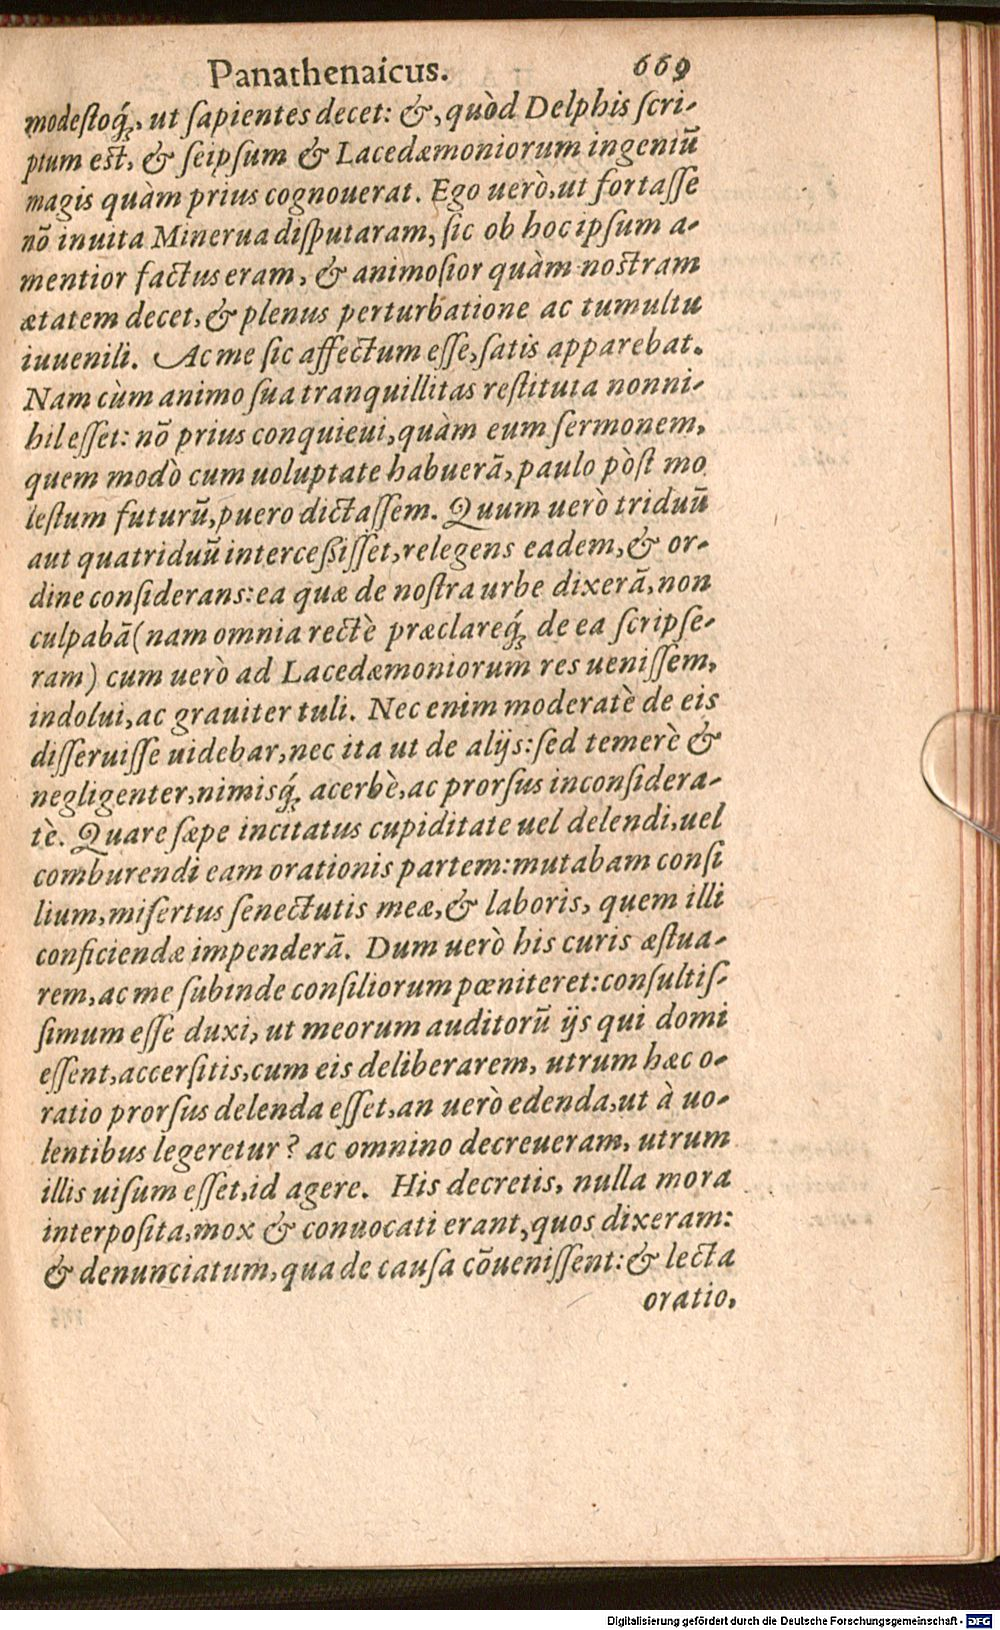 Panathenaicus. 669
modestoq́;, ut sapientes decet: &, quòd Delphis scri-
ptum est, & seipsum & Lacedæmoniorum ingeniū
magis quàm prius cognouerat. Ego uerò, ut fortasse
nō inuita Minerua disputaram, sic ob hoc ipsum a-
mentior factus eram, & animosior quàm nostram
ætatem decet, & plenus perturbatione ac tumultu
iuuenili. Ac me sic affectum esse, satis apparebat.
Nam cùm animo sua tranquillitas restituta nonni-
hil esset: nō prius conquieui, quàm eum sermonem,
quem modò cum uoluptate habuerā, paulo pòst mo
lestum futurū, puero dictassem. Quum uerò triduū
aut quatriduū intercessisset, relegens eadem, & or-
dine considerans: ea quæ de nostra urbe dixerā, non
culpabā (nam omnia rectè præclareq́; de ea scripse-
ram) cum uerò ad Lacedæmoniorum res uenissem,
indolui, ac grauiter tuli. Nec enim moderatè de eis
disseruisse uidebar, nec ita ut de alijs: sed temerè &
negligenter, nimisq́; acerbè, ac prorsus inconsidera-
tè. Quare sæpe incitatus cupiditate uel delendi, uel
comburendi eam orationis partem: mutabam consi
lium, misertus senectutis meæ, & laboris, quem illi
conficiendæ impenderā. Dum uerò his curis æstua-
rem, ac me subinde consiliorum pœniteret: consultis-
simum esse duxi, ut meorum auditorū ijs qui domi
essent, accersitis, cum eis deliberarem, utrum hæc o-
ratio prorsus delenda esset, an uerò edenda, ut à uo-
lentibus legeretur? ac omnino decreueram, utrum
illis uisum esset, id agere. His decretis, nulla mora
interposita, mox & conuocati erant, quos dixeram:
& denunciatum, qua de causa cōuenissent: & lecta
oratio,
Digitalisierung gefördert durch die Deutsche Forschungsgemeinschaft - DFG